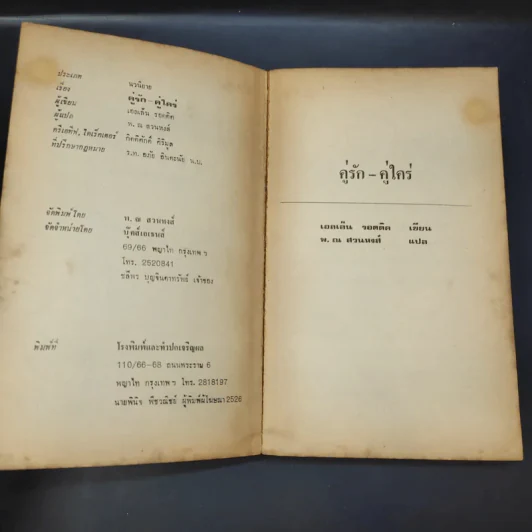 ประเภท นวนิยาย
เรื่อง คู่รัก - คู่ใคร่
ผู้เขียน เฮลเล็น รอตติค
ผู้แปล พ. ณ สวนหงส์
ครีเอทีฟ, ไดเร็คเตอร์ กิตติศักดิ์ ศิริมูล
ที่ปรึกษากฎหมาย ร.ท. อภัย น.บ.
จัดพิมพ์โดย พ. ณ สวนหงส์
จัดจำหน่ายโดย บุ๊คส์เอเยนส์
69/66 พญาไท กรุงเทพ ฯ
โทร. 2520841
ชลีทร บุญจินดาทรัพย์ เจ้าของ
พิมพ์ที่ โรงพิมพ์และทำปกเจริญผล
110/66-68 ถนนพระราม 6
พญาไท กรุงเทพ ฯ โทร. 2818197
นายพินิจ พืชวณิชย์ ผู้พิมพ์ผู้โฆษณา 2526
คู่รัก - คู่ใคร่
เฮลเล็น รอตติค เขียน
พ. ณ สวนหงส์ แปล